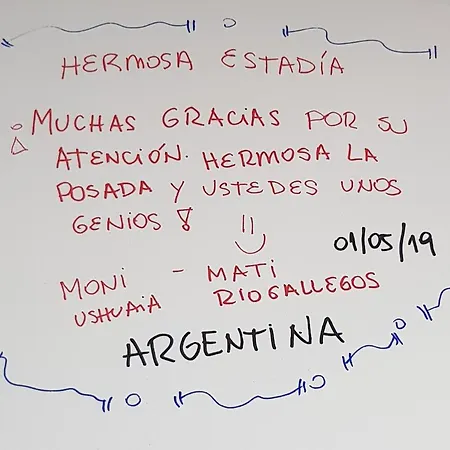 HERMOSA ESTADÍA
¡MUCHAS GRACIAS POR SU
ATENCIÓN. HERMOSA LA
POSADA Y USTEDES UNOS
GENIOS!
01/05/19
MONI - MATI
USHUAIA RIO GALLEGOS
ARGENTINA